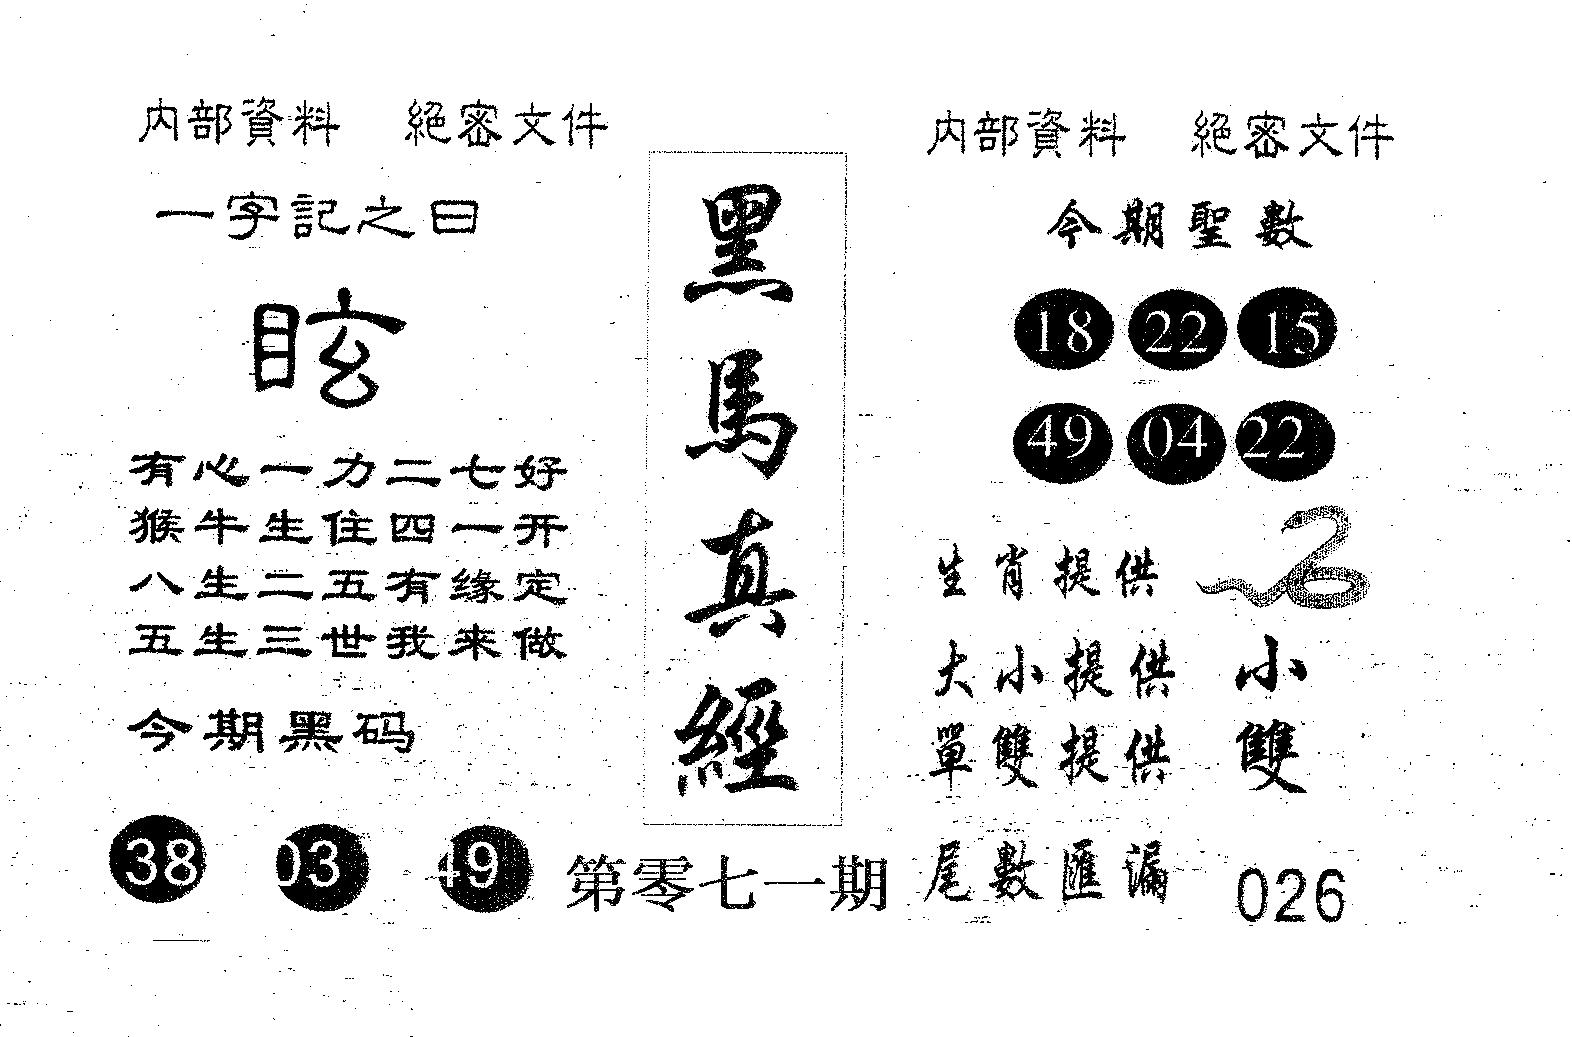 内部資料　絕密文件
一字記之曰
眩
有心一力二七好
猴牛生住四一开
八生二五有缘定
五生三世我来做
今期黑码
38 03 49
黑馬真經
第零七一期
内部資料　絕密文件
今期聖數
18 22 15
49 04 22
生肖提供
大小提供 小
單雙提供 雙
尾數匯漏 026